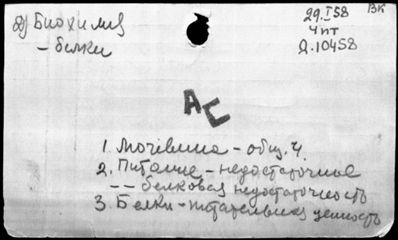 2) Биохимия
– белки
29.I 58
ВК
4 пт
Д.10458
АС
1. Мочевина – общ. ч.
2. Питание – недостаточное
– – белковая недостаточность
3 Белки – питательная ценность